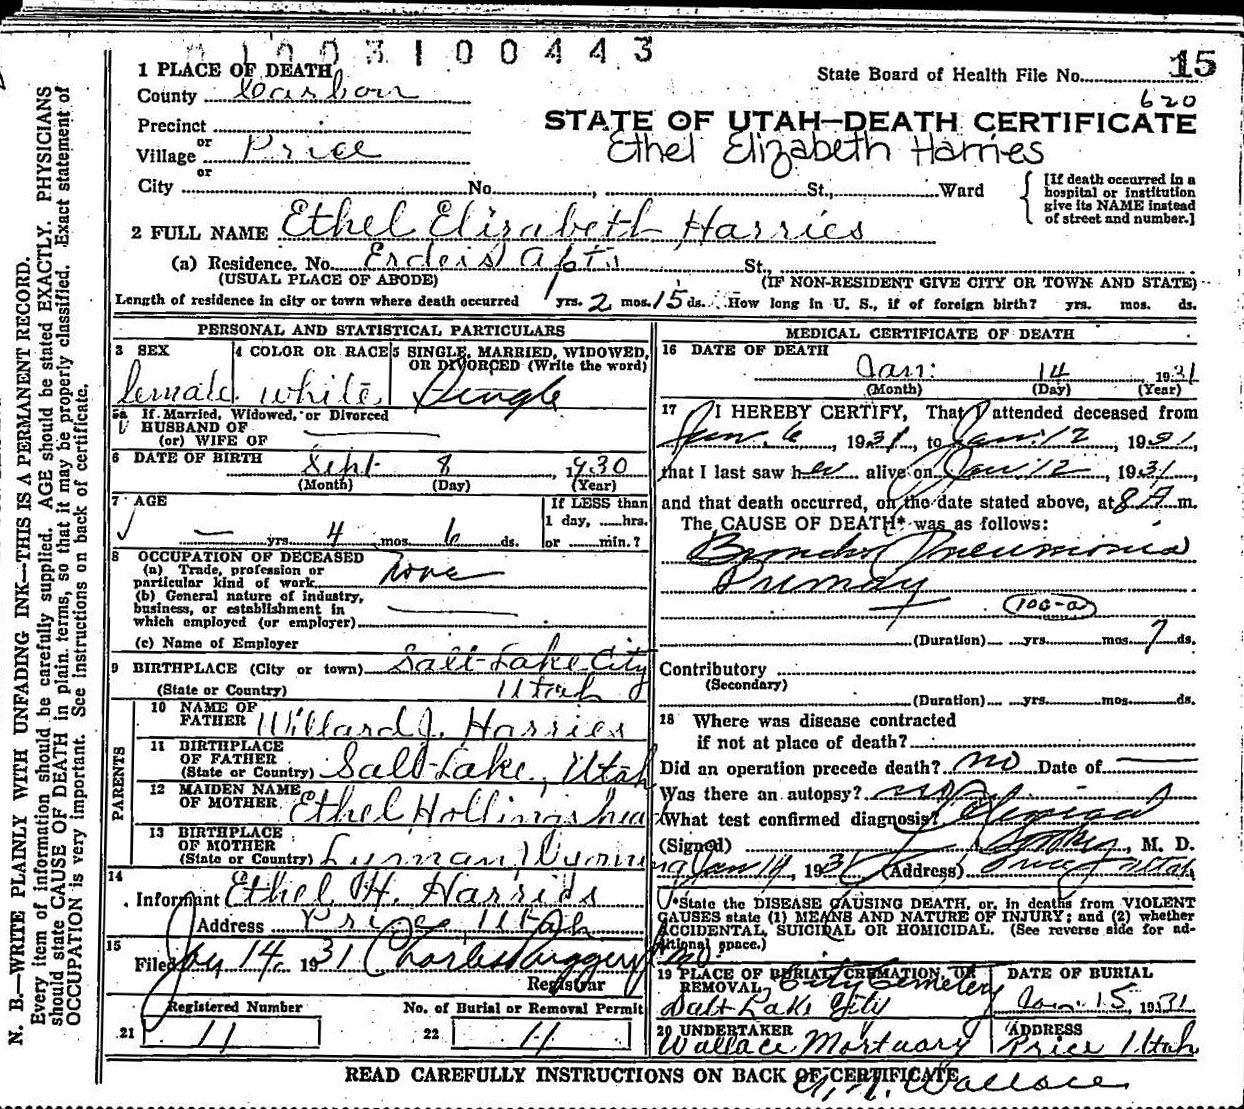 N. B.—WRITE PLAINLY WITH UNFADING INK—THIS IS A PERMANENT RECORD.
Every item of information should be carefully supplied. AGE should be stated EXACTLY. PHYSICIANS
should state CAUSE OF DEATH in plain terms, so that it may be properly classified. Exact statement of
OCCUPATION is very important. See instructions on back of certificate.
3100443
15
1 PLACE OF DEATH
State Board of Health File No.
County Carbon
620
Precinct
STATE OF UTAH—DEATH CERTIFICATE
or
Village Price
Ethel Elizabeth Harries
or
City No. , St., Ward
[If death occurred in a
hospital or institution
give its NAME instead
of street and number.]
2 FULL NAME Ethel Elizabeth Harries
(a) Residence. No. Apts St.,
(USUAL PLACE OF ABODE) (IF NON-RESIDENT GIVE CITY OR TOWN AND STATE)
Length of residence in city or town where death occurred yrs. 2 mos. 15 ds. How long in U. S., if of foreign birth? yrs. mos. ds.
PERSONAL AND STATISTICAL PARTICULARS
3 SEX
female
4 COLOR OR RACE
white
5 SINGLE, MARRIED, WIDOWED,
OR DIVORCED (Write the word)
Single
5a If Married, Widowed, or Divorced
HUSBAND OF
(or) WIFE OF
6 DATE OF BIRTH Sept. 8, 1930
(Month) (Day) (Year)
7 AGE
— yrs. 4 mos. 6 ds.
If LESS than
1 day, hrs.
or min.?
8 OCCUPATION OF DECEASED
(a) Trade, profession or
particular kind of work none
(b) General nature of industry,
business, or establishment in
which employed (or employer)
(c) Name of Employer
9 BIRTHPLACE (City or town) Salt Lake City
(State or Country) Utah
PARENTS
10 NAME OF
FATHER Willard J. Harries
11 BIRTHPLACE
OF FATHER
(State or Country) Salt Lake, Utah
12 MAIDEN NAME
OF MOTHER Ethel Hollingshead
13 BIRTHPLACE
OF MOTHER
(State or Country) Lyman, Wyoming
14
Informant Ethel H. Harries
Address Price, Utah
15
Filed 14, 1931 Charles
Registrar
Registered Number
21 11
No. of Burial or Removal Permit
22 11
MEDICAL CERTIFICATE OF DEATH
16 DATE OF DEATH
Jan. 14 1931
(Month) (Day) (Year)
17 I HEREBY CERTIFY, That I attended deceased from
Jan. 6, 1931, to Jan. 12, 1931,
that I last saw her alive on Jan 12, 1931,
and that death occurred, on the date stated above, at 8 A m.
The CAUSE OF DEATH* was as follows:
Broncho Pneumonia
Primary
(Duration) yrs. mos. 7 ds.
Contributory
(Secondary)
(Duration) yrs. mos. ds.
18 Where was disease contracted
if not at place of death?
Did an operation precede death? no Date of
Was there an autopsy? no
What test confirmed diagnosis?
(Signed) , M. D.
Jan 14, 1931 (Address) Price, Utah
*State the DISEASE CAUSING DEATH, or, in deaths from VIOLENT
CAUSES state (1) MEANS AND NATURE OF INJURY; and (2) whether
ACCIDENTAL, SUICIDAL OR HOMICIDAL. (See reverse side for ad-
ditional space.)
19 PLACE OF BURIAL, CREMATION, OR
REMOVAL, City Cemetery
Salt Lake City
DATE OF BURIAL
Jan. 15, 1931
20 UNDERTAKER
Wallace Mortuary
ADDRESS
Price Utah
READ CAREFULLY INSTRUCTIONS ON BACK OF CERTIFICATE
Wallace